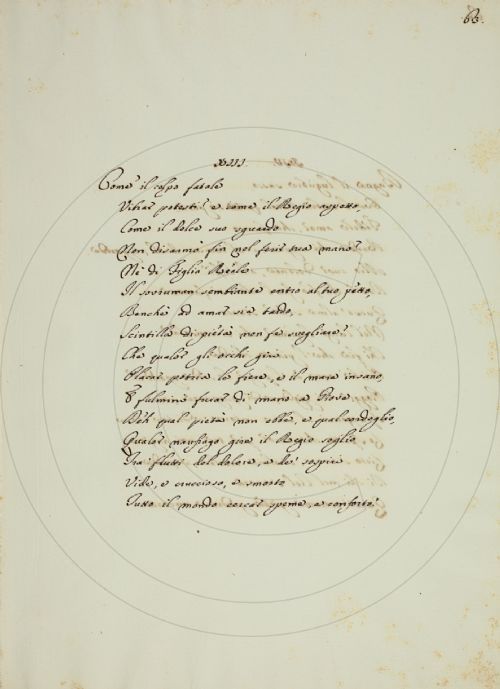 63.
XIII
Come il colpo fatale
Vibrar potesti e come il Regio aspetto,
Come il dolce suo sguardo
Non disarmò fin nel ferir tua mano?
Nè di Figlio Reale
Il sovruman sembiante entro al tuo petto,
Benchè ad amar sia tardo,
Scintilla di pietà non fè svegliare?
Che qualor gli occhi gira
Placar potria le fiere, e il mare insano,
E fulmini furar di mano a Giove
Deh qual pietà non ebbe, e qual cordoglio,
Qualor naufrago gira il Regio soglio
Tra flutti del dolore, e de' sospiri
Vide, e cruccioso, e smorto
Tutto il mondo cercar speme, e conforto!